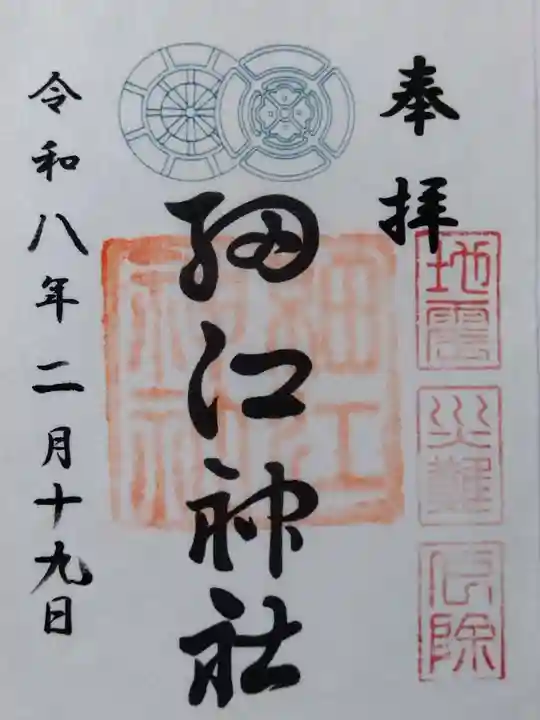 奉拝
地震
災難
厄除
細江神社
細江神社
令和八年二月十九日